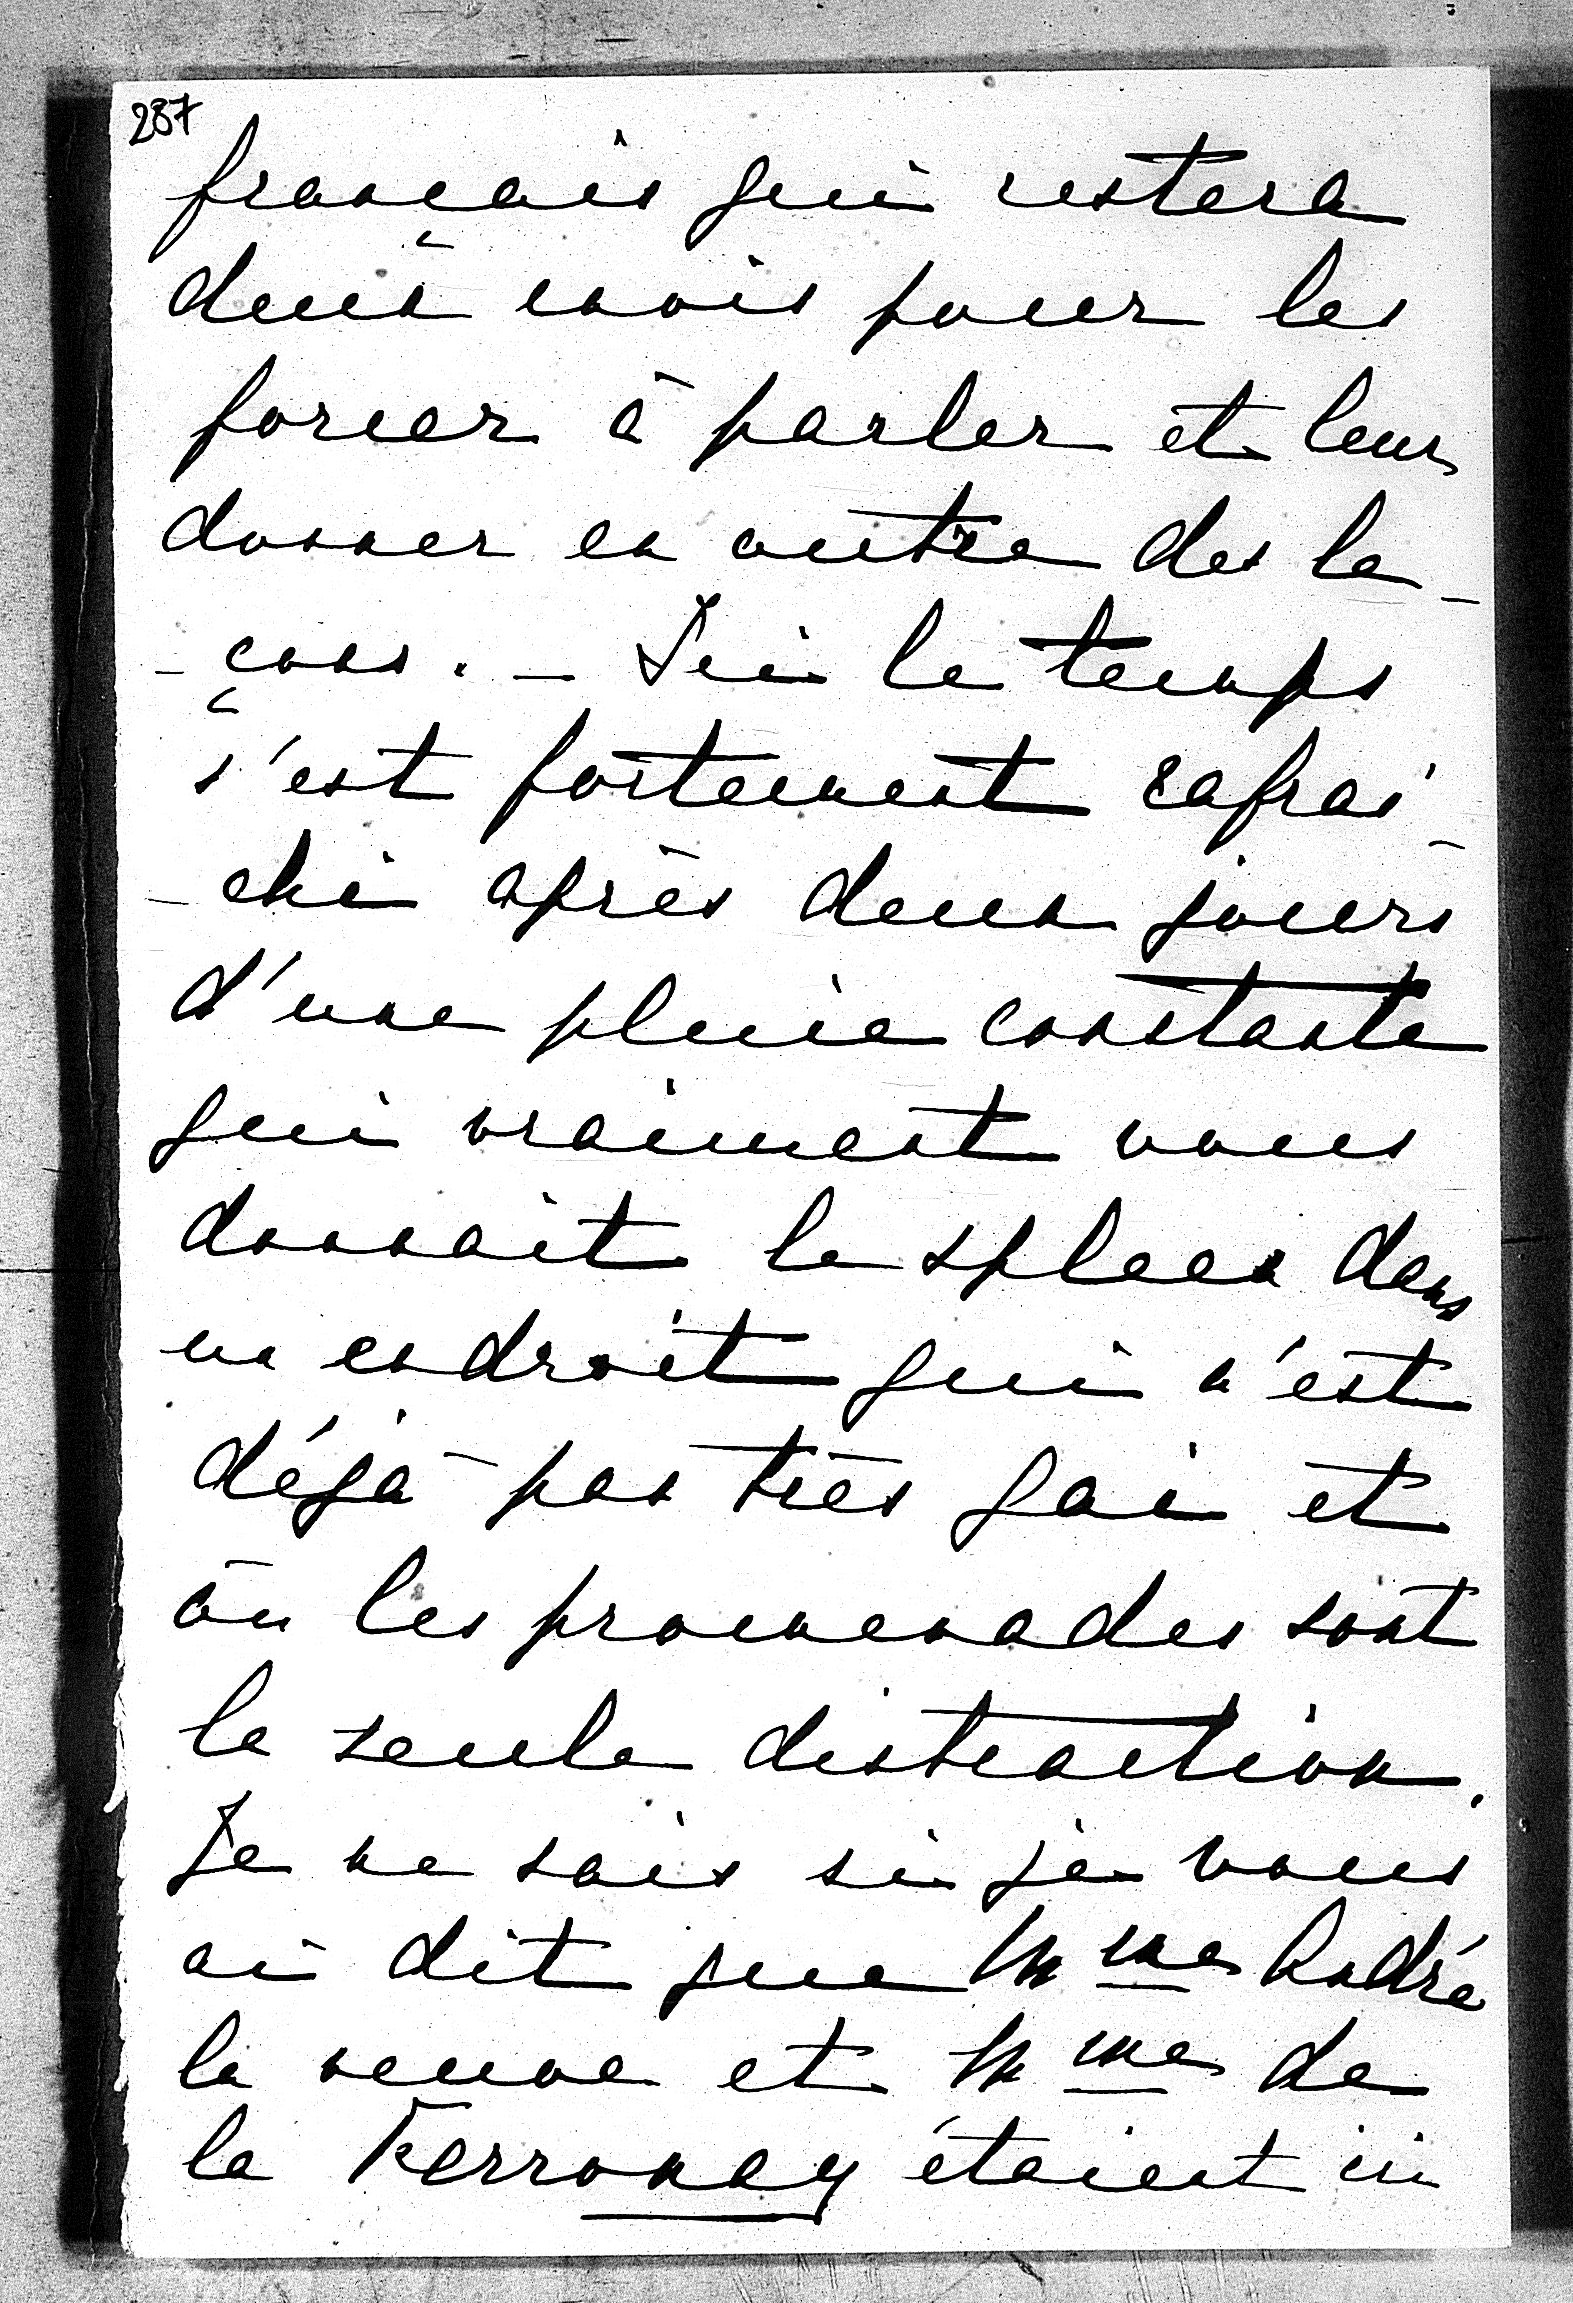 287
français qui restera
deux mois pour les
forcer à parler et leur
donner en outre des le-
-çons. - Ici le temps
s'est fortement rafraî-
-chi après deux jours
d'une pluie constante
qui vraiment vous
donnait le spleen dans
un endroit qui n'est
déjà pas très gai et
où les promenades sont
la seule distraction.
Je ne sais si je vous
ai dit que Mme André
la veuve et Mme de
la Ferronay étaient ici